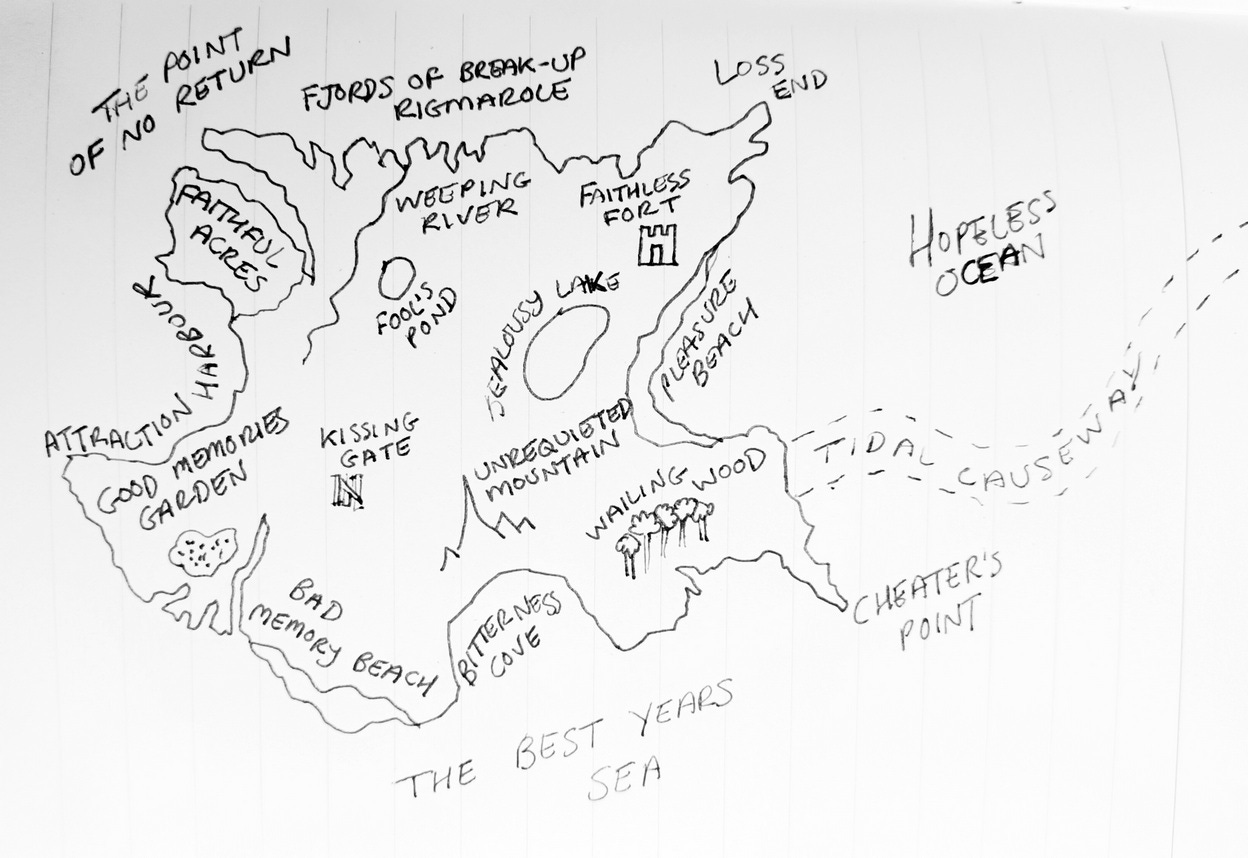 THE POINT
OF NO RETURN
FJORDS OF BREAK-UP
RIGMAROLE
LOSS
END
FAITHFUL
ACRES
WEEPING
RIVER
FAITHLESS
FORT
HOPELESS
OCEAN
FOOL'S
POND
JEALOUSY LAKE
PLEASURE
BEACH
ATTRACTION HARBOUR
GOOD MEMORIES
GARDEN
KISSING
GATE
UNREQUIETED
MOUNTAIN
WAILING WOOD
TIDAL CAUSEWAY
BAD
MEMORY BEACH
BITTERNESS
COVE
CHEATER'S
POINT
THE BEST YEARS
SEA